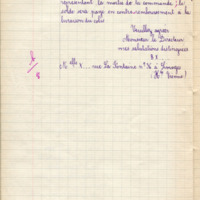 représentant la moitié de la commande ; le
solde sera payé en contre-remboursement à la
livraison du colis
Veuillez agréer
Monsieur le Directeur
mes salutations distinguées
B X.
Melle X... rue La Fontaine n° X à Limoges
(Hte Vienne)